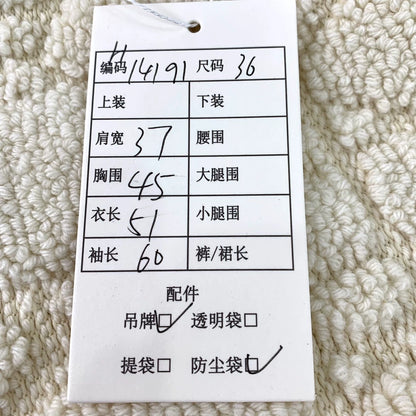 编码 H14191 尺码 36
上装 下装
肩宽 37 腰围
胸围 45 大腿围
衣长 51 小腿围
袖长 60 裤/裙长
配件
吊牌☑ 透明袋☐
提袋☐ 防尘袋☑